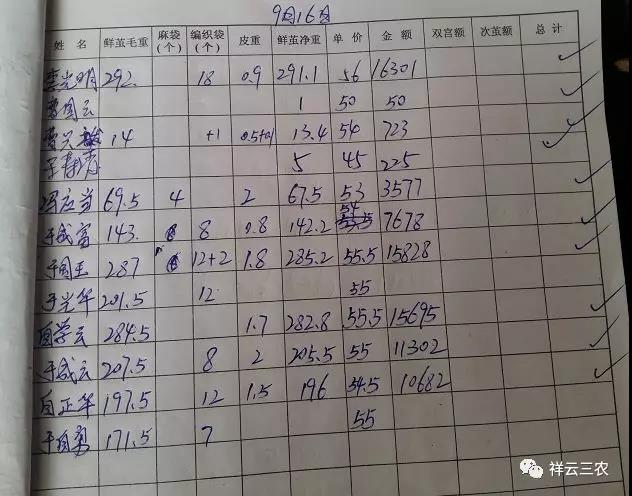 9月16日
姓 名 鲜茧毛重 麻袋(个) 编织袋(个) 皮重 鲜茧净重 单 价 金 额 双宫额 次茧额 总 计
李光明 292. 18 0.9 291.1 56 16301
国云 1 50 50
14 +1 13.4 54 723
5 45 225
69.5 4 2 67.5 53 3577
于成富 143. 8 0.8 142.2 54 7678
于国玉 287 12+2 1.8 285.2 55.5 15828
于光华 201.5 12 55
自学云 284.5 1.7 282.8 55.5 15695
于成云 207.5 8 2 205.5 55 11302
自正华 197.5 12 1.5 196 54.5 10682
于自 171.5 7 55
祥云三农